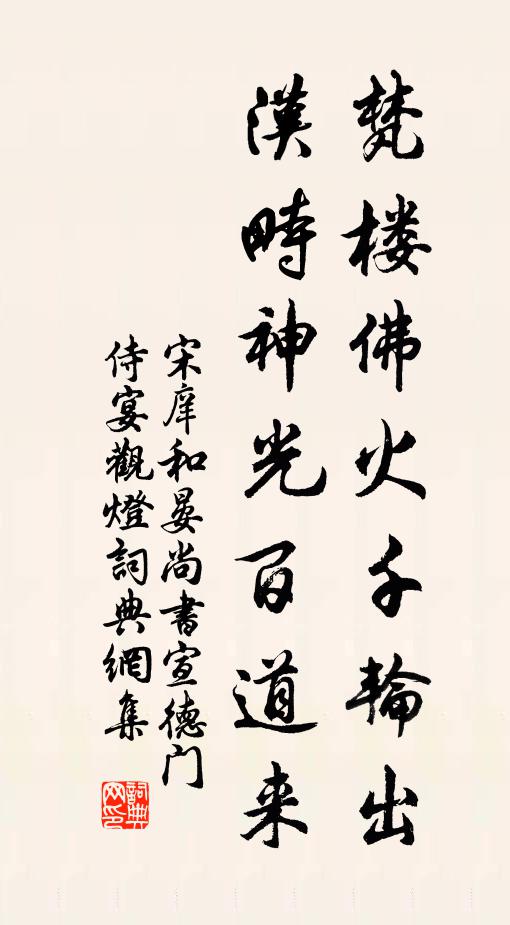 梵楼佛火千輪出
漢畤神光百道来
宋庠和晏尚書宣德门
侍宴觀燈詞典網集
詞典网印